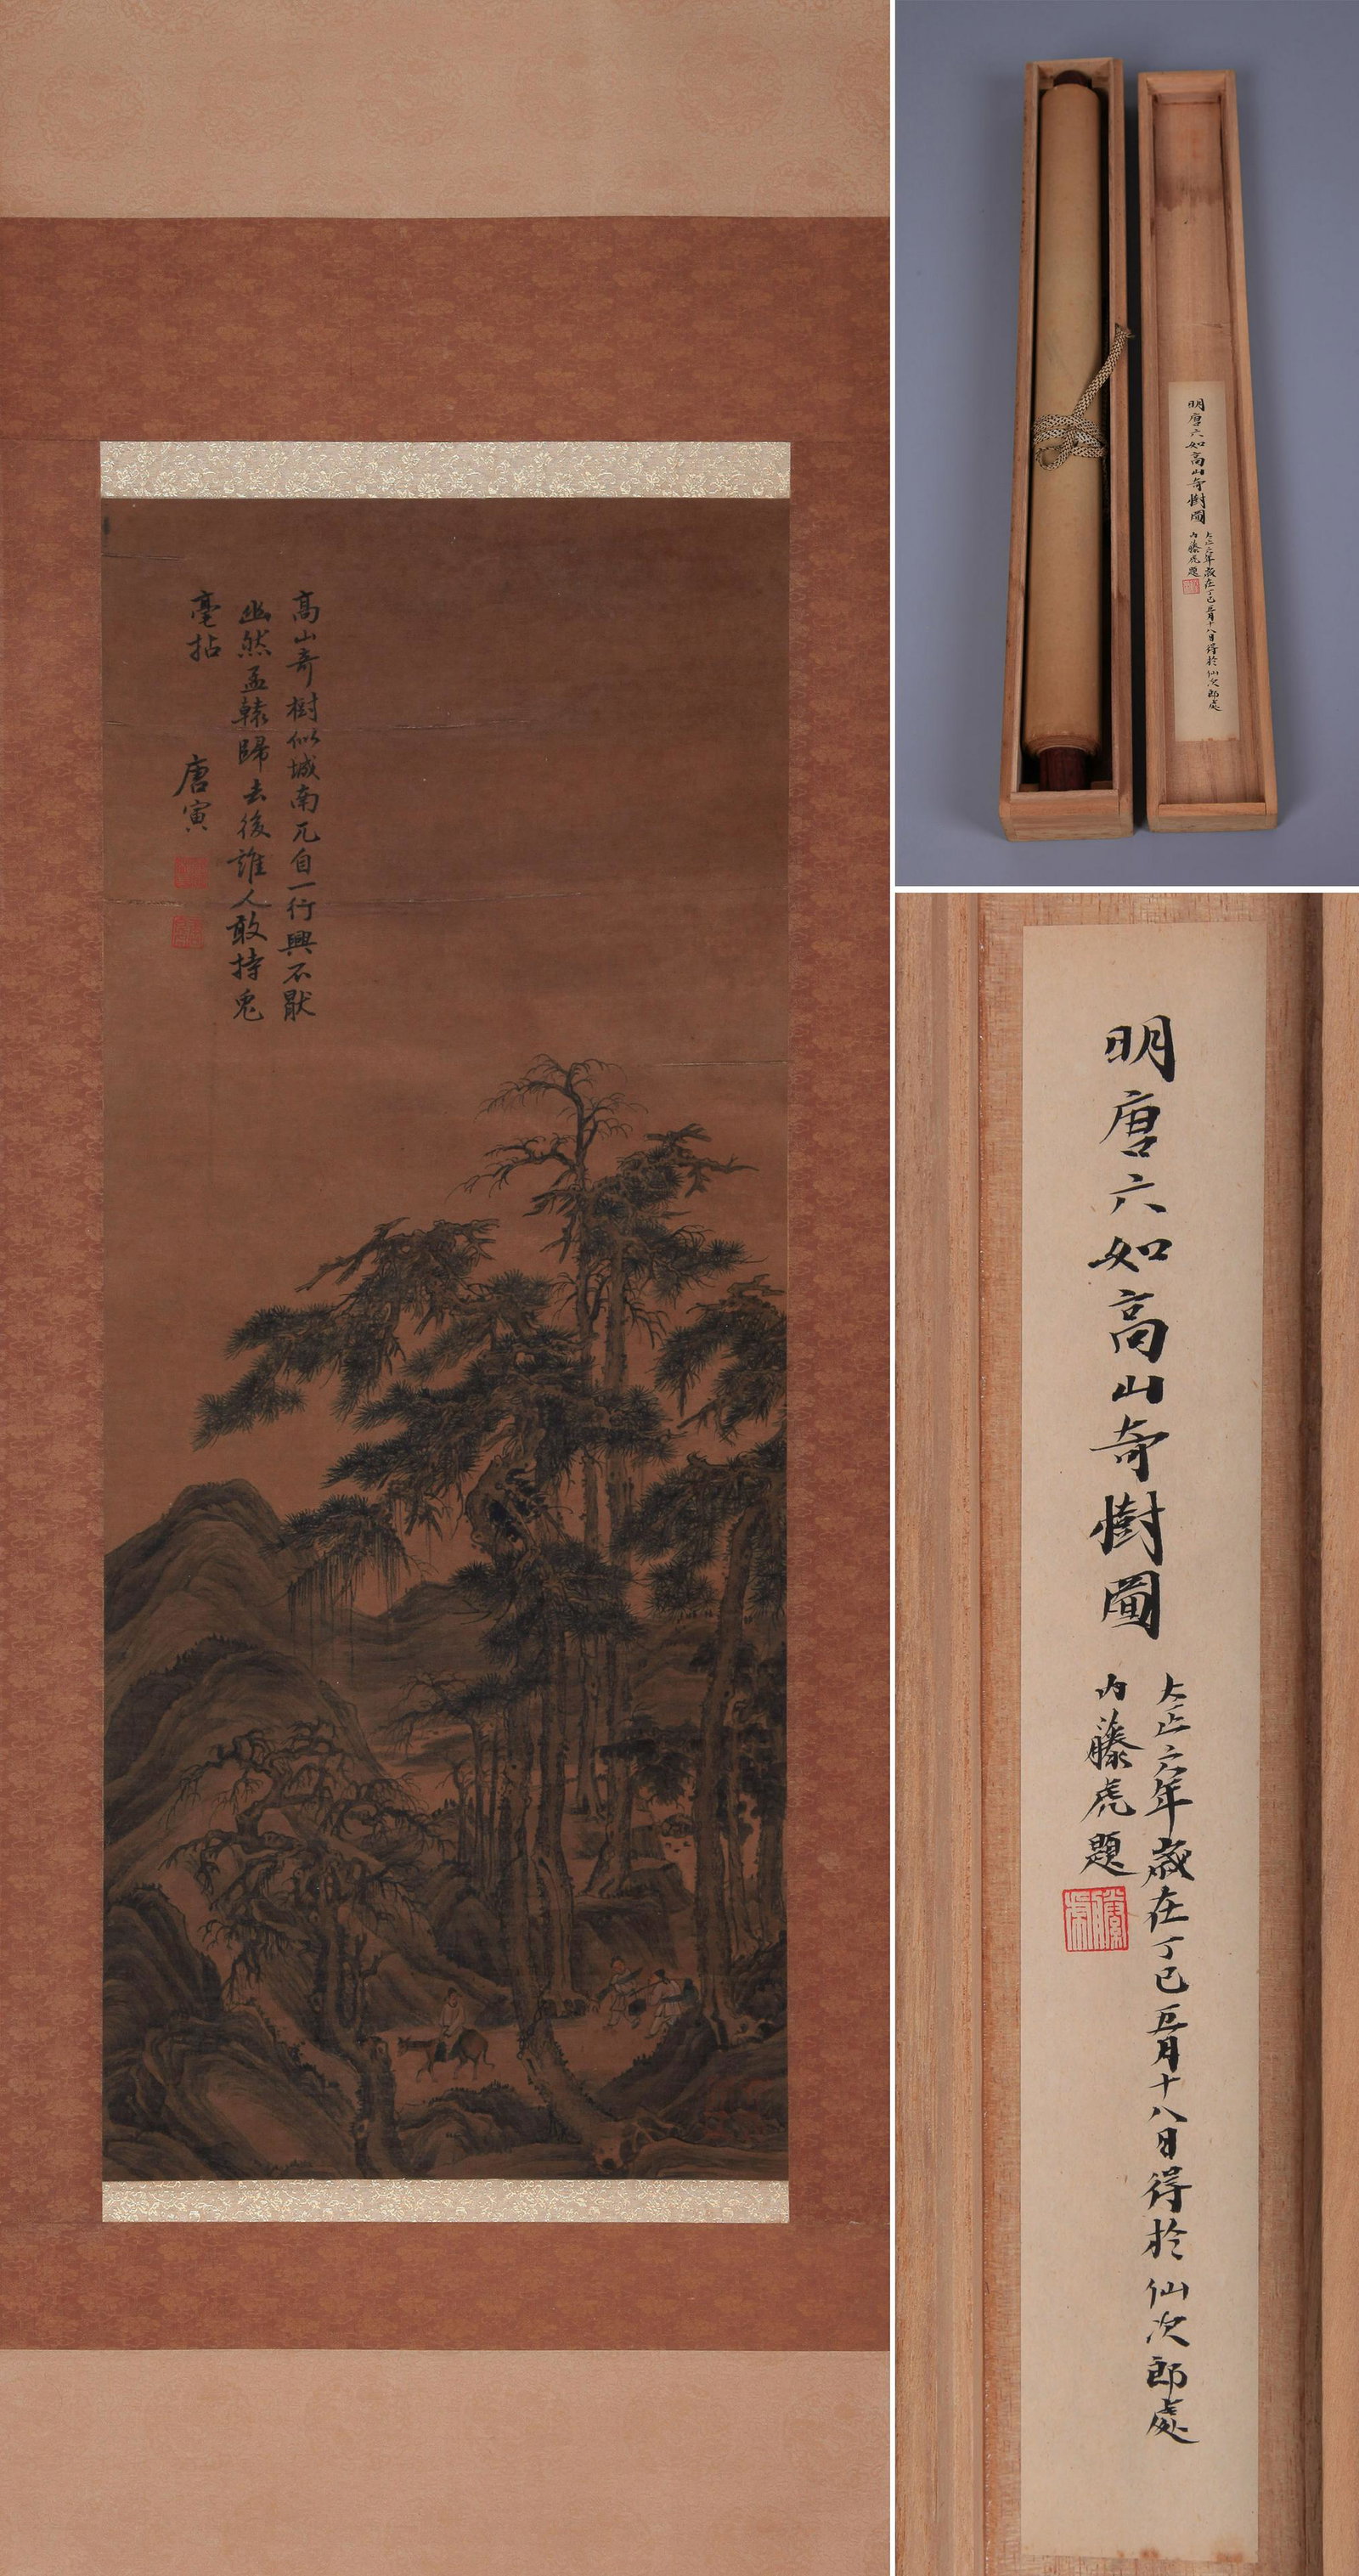 高山奇樹似城南兀自一行興不厭
幽然孟轅歸去後誰人敢持兔
毫拈
唐寅
明唐六如高山奇樹圖
大正六年歲在丁巳五月十八日得於仙次郎處
内藤虎題
明唐六如高山奇樹圖
大正六年歲在丁巳五月十八日得於仙次郎處
内藤虎題